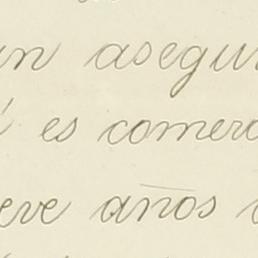 un asegu
es comer
eve años